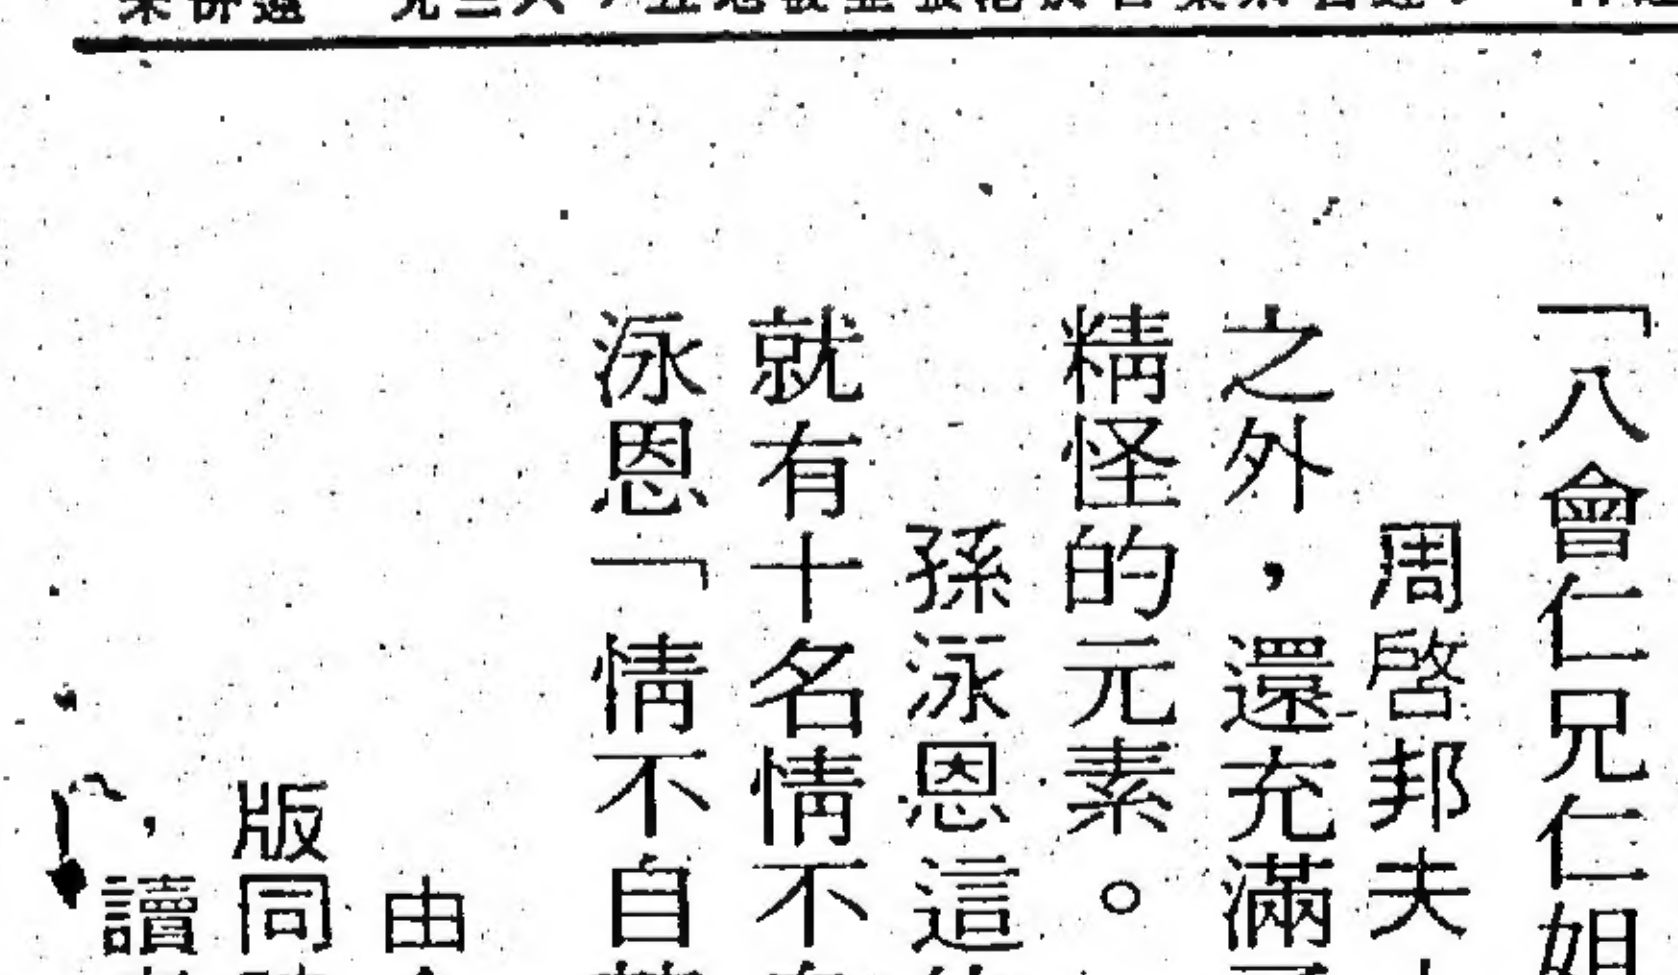 「八會仁兄仁姐
周啓邦夫
之外，還充滿
精怪的元素。
孫泳恩這
就有十名情不
泳恩「情不自
由
版同
，讀